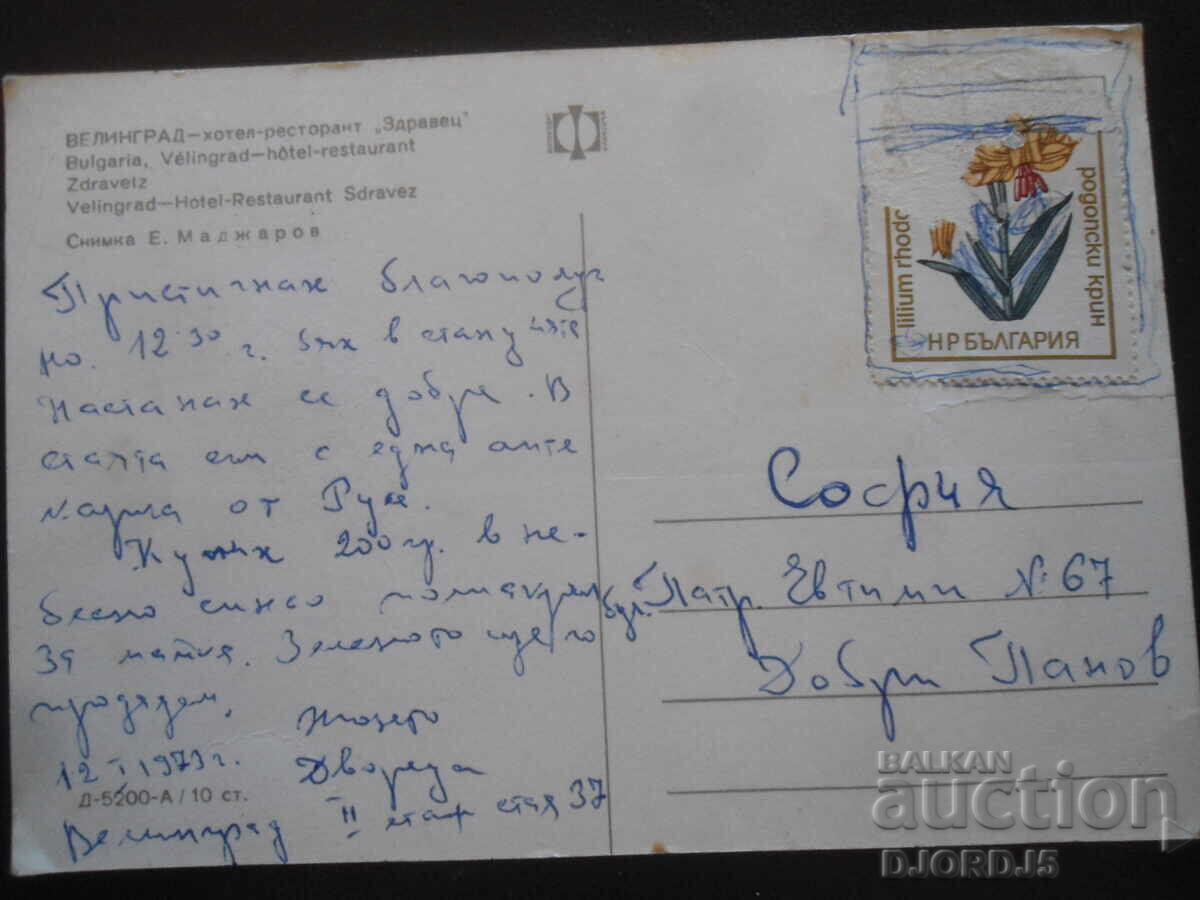 ВЕЛИНГРАД—хотел-ресторант „Здравец"
Bulgaria, Vélingrad—hôtel-restaurant
Zdravetz
Velingrad—Hotel-Restaurant Sdravez
Снимка Е. Маджаров
Пристигнах благополуч
но. 12³⁰ г. бях в стану
Настаних се добре. В
стаята съм с една
от Русе.
Купих 200 гр. в не-
бесно синьо
за Зеленото ще го
продадем.
12 I 1973 г.
Двореца
II етаж стая 37
Велинград
Д-5200-А / 10 ст.
lilium rhodo
родопски крин
НР БЪЛГАРИЯ
София
бул. Патр. Евтими № 67
Добри Панов
BALKAN
auction
DJORDJ5